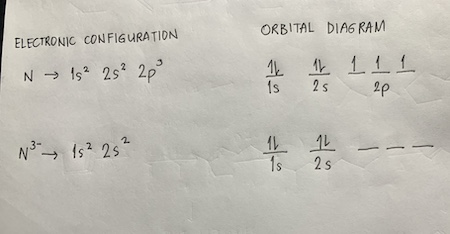 ELECTRONIC CONFIGURATION
ORBITAL DIAGRAM
N → 1s² 2s² 2p³
1↓ 1↓ 1 1 1
1s 2s 2p
N³⁻ → 1s² 2s²
1↓ 1↓ _ _ _
1s 2s